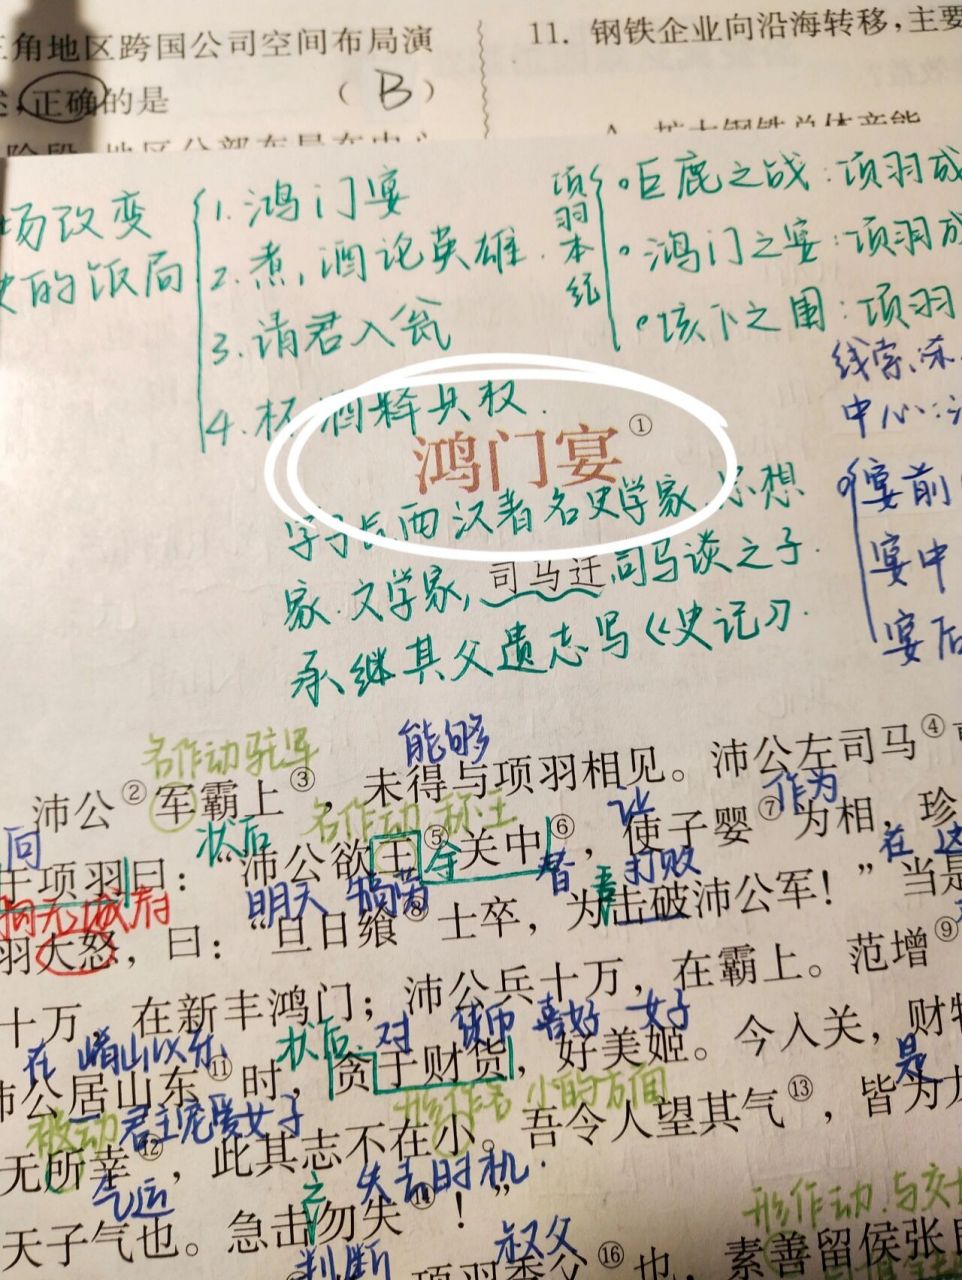 角地区跨国公司空间布局演
正确的是 （ B ）
11. 钢铁企业向沿海转移，主要
场改变
的饭局
1. 鸿门宴
2. 煮酒论英雄.
3. 请君入瓮
4. 杯酒释兵权.
项羽本纪
巨鹿之战：项羽成
鸿门之宴：项羽成
垓下之围：项羽
线索:
中心:
宴前
宴中
宴后
鸿门宴①
字子长西汉著名史学家 思想
家.文学家, 司马迁,司马谈之子.
承继其父遗志写《史记》.
名作动驻军 能够
沛公②军霸上③，未得与项羽相见。沛公左司马④
状后 名作动.称王 让 作为
项羽曰：“沛公欲王⑤关中⑥，使子婴⑦为相，珍
胸无城府 明天 犒劳 替 打败 在 这
羽大怒，曰：“旦日飨⑧士卒，为击破沛公军！”当是
十万，在新丰鸿门；沛公兵十万，在霸上。范增⑨
在崤山以东 状后 对 钱币 喜好 女子
沛公居山东⑪时，贪于财货，好美姬。今入关，财物
被动 君主宠爱女子 形作名 小的方面 是
无所幸⑫，此其志不在小。吾令人望其气⑬，皆为龙
气运 之 失去时机.
天子气也。急击勿失⑭！”
判断 叔父 形作动.与交
项羽季父⑯也，素善留侯张良